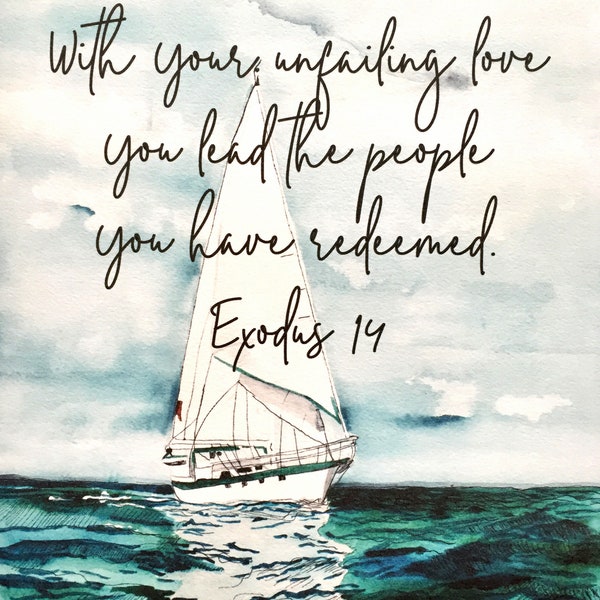 With your unfailing love
you lead the people
you have redeemed.
Exodus 14